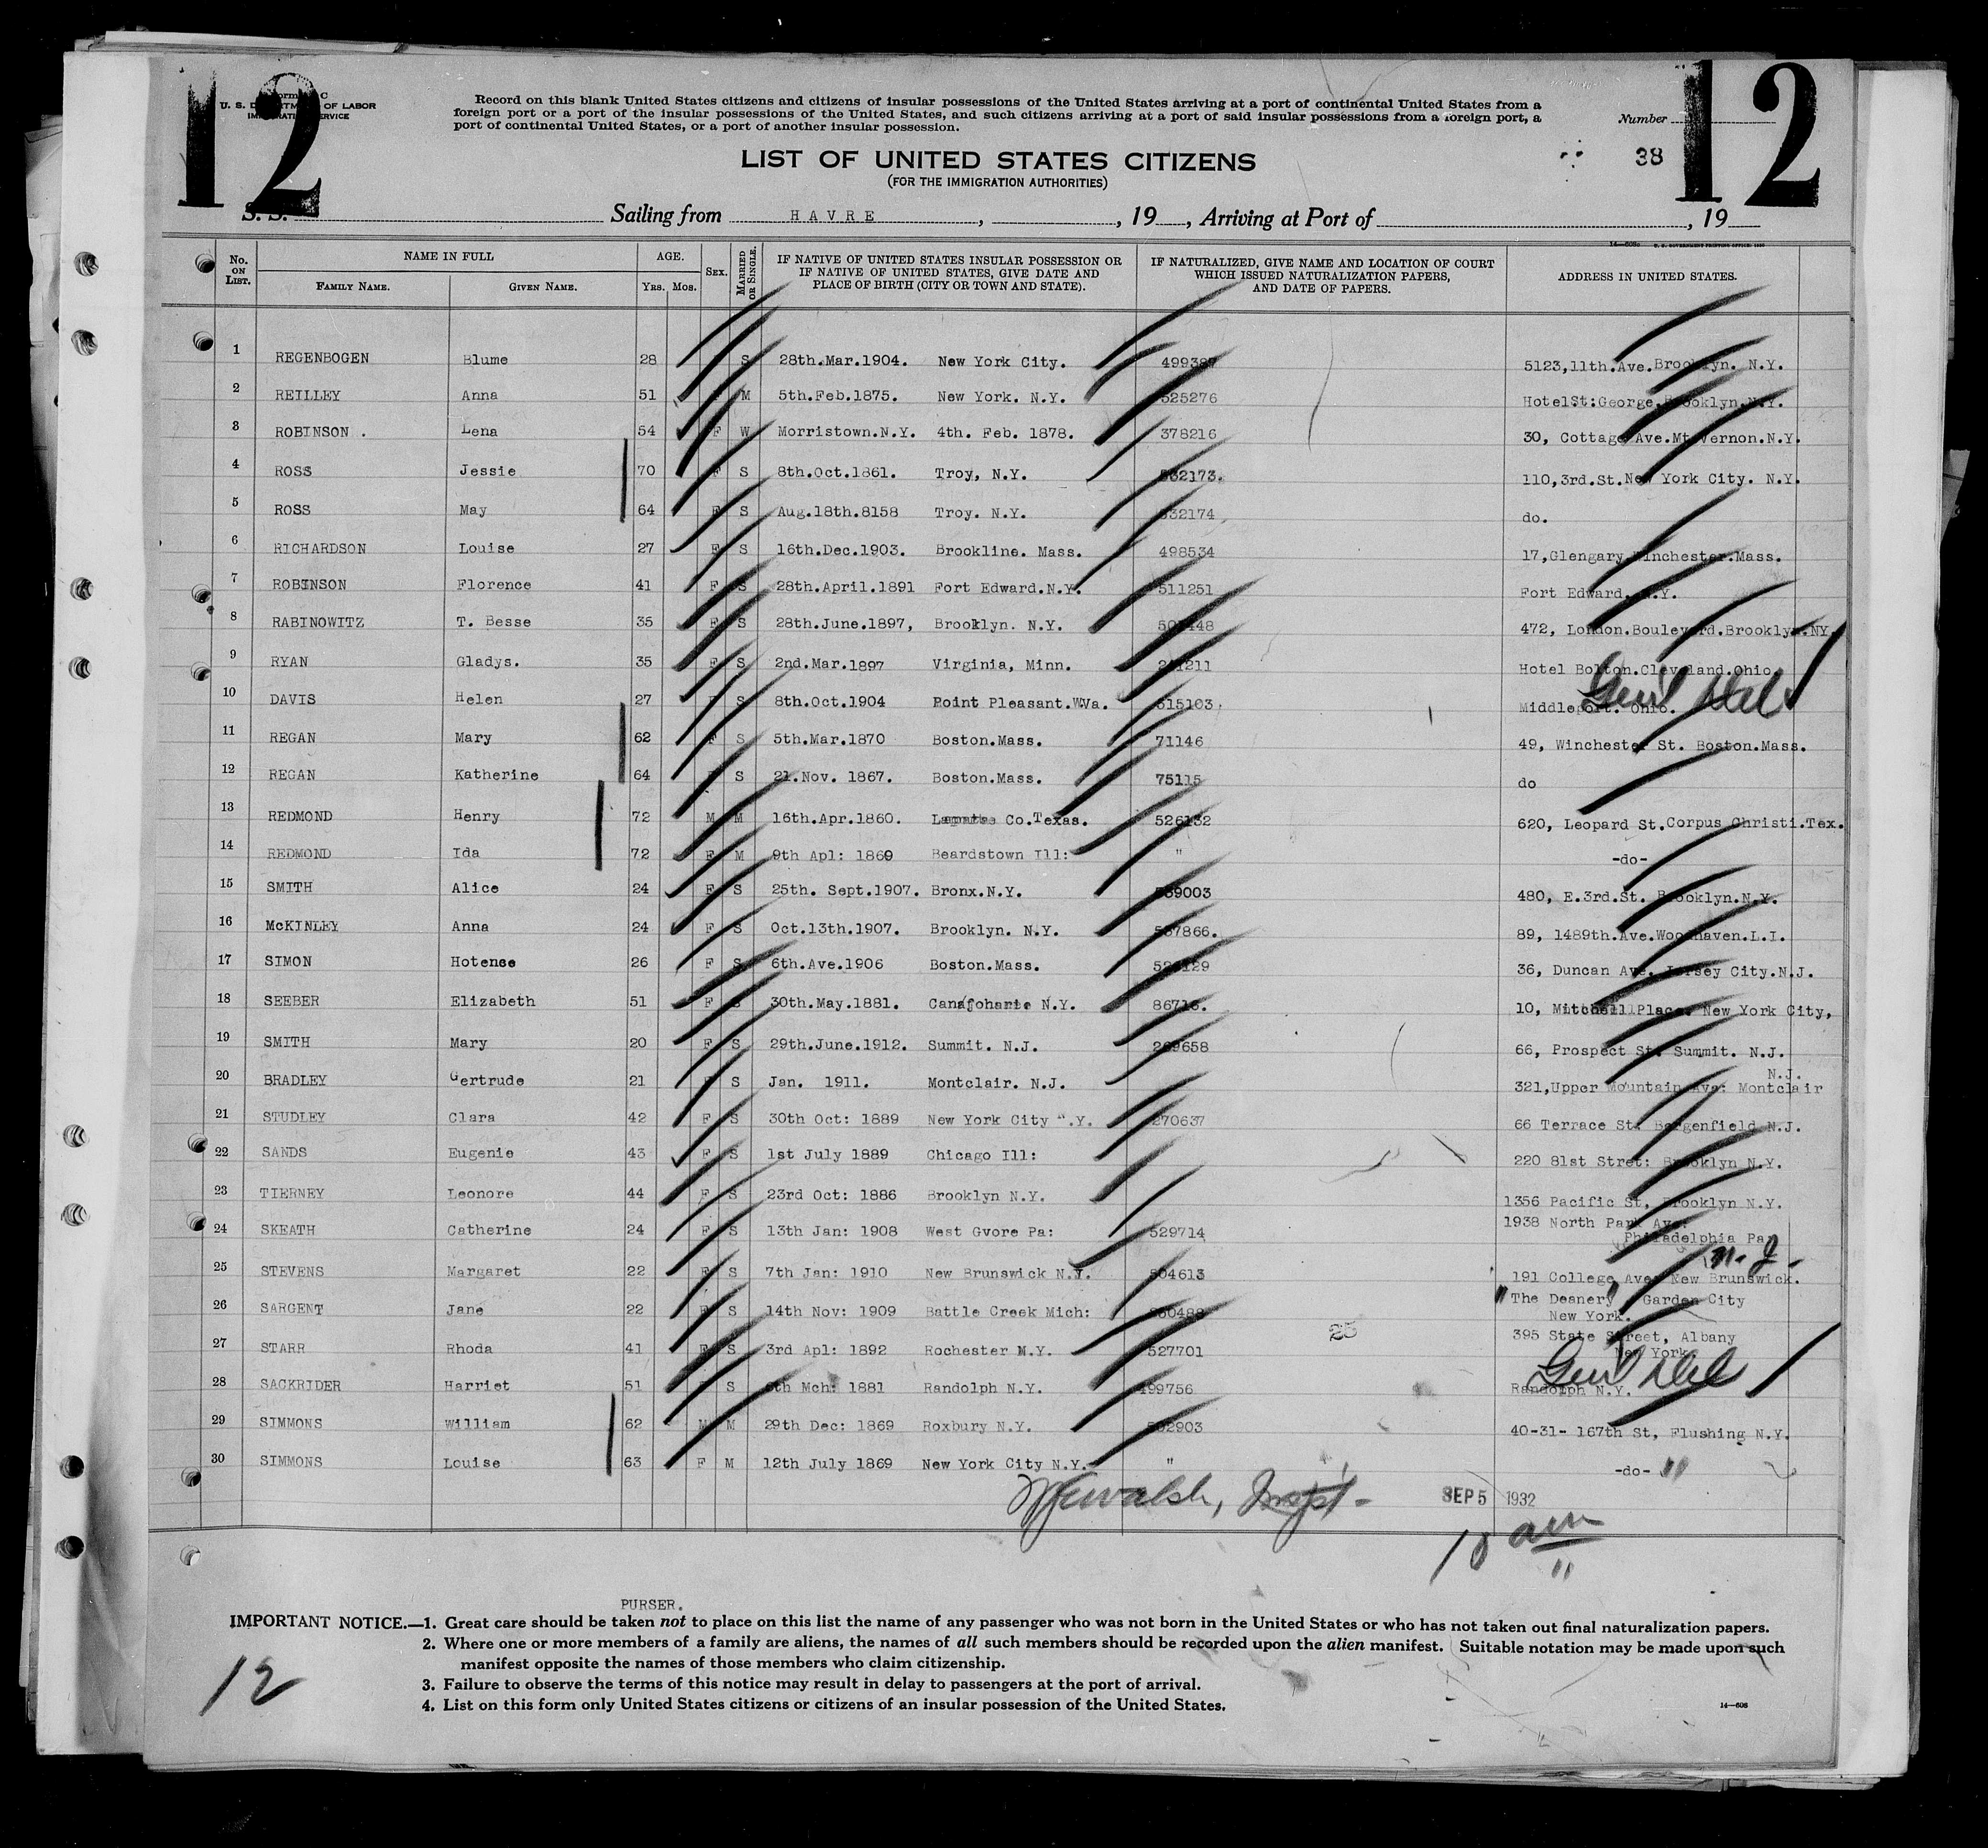 12
12
U. S. DEPARTMENT OF LABOR
IMMIGRATION SERVICE
Record on this blank United States citizens and citizens of insular possessions of the United States arriving at a port of continental United States from a
foreign port or a port of the insular possessions of the United States, and such citizens arriving at a port of said insular possessions from a foreign port, a
port of continental United States, or a port of another insular possession.
Number
38
LIST OF UNITED STATES CITIZENS
(FOR THE IMMIGRATION AUTHORITIES)
S. S. Sailing from HAVRE, , 19 , Arriving at Port of , 19
14—608c U. S. GOVERNMENT PRINTING OFFICE: 1930
No. ON LIST. NAME IN FULL AGE. SEX. MARRIED OR SINGLE. IF NATIVE OF UNITED STATES INSULAR POSSESSION OR IF NATIVE OF UNITED STATES, GIVE DATE AND PLACE OF BIRTH (CITY OR TOWN AND STATE). IF NATURALIZED, GIVE NAME AND LOCATION OF COURT WHICH ISSUED NATURALIZATION PAPERS, AND DATE OF PAPERS. ADDRESS IN UNITED STATES.
FAMILY NAME. GIVEN NAME. YRS. MOS.
1 REGENBOGEN Blume 28 S 28th.Mar.1904. New York City. 499389 5123,11th.Ave.Brooklyn. N.Y.
2 REILLEY Anna 51 F M 5th.Feb.1875. New York. N.Y. 525276 HotelSt:George,Brooklyn.N.Y.
3 ROBINSON . Lena 54 F W Morristown.N.Y. 4th. Feb. 1878. 378216 30, Cottage Ave.Mt.Vernon.N.Y.
4 ROSS Jessie 70 F S 8th.Oct.1861. Troy, N.Y. 532173. 110,3rd.St.New York City. N.Y.
5 ROSS May 64 F S Aug.18th.8158 Troy. N.Y. 532174 do.
6 RICHARDSON Louise 27 F S 16th.Dec.1903. Brookline. Mass. 498534 17,Glengary.Winchester.Mass.
7 ROBINSON Florence 41 F S 28th.April.1891 Fort Edward.N.Y. 511251 Fort Edward. N.Y.
8 RABINOWITZ T. Besse 35 F S 28th.June.1897, Brooklyn. N.Y. 472, London.Boulevard.Brooklyn.NY.
9 RYAN Gladys. 35 F S 2nd.Mar.1897 Virginia, Minn. Hotel Bolton.Cleveland.Ohio
Gen'l Del
10 DAVIS Helen 27 F S 8th.Oct.1904 Point Pleasant.W.Va. 515103. Middleport. Ohio.
11 REGAN Mary 62 F S 5th.Mar.1870 Boston.Mass. 71146 49, Winchester St. Boston.Mass.
12 REGAN Katherine 64 F S 21.Nov. 1867. Boston.Mass. 75115 do
13 REDMOND Henry 72 M M 16th.Apr.1860. Co.Texas. 526132 620, Leopard St.Corpus Christi.Tex.
14 REDMOND Ida 72 F M 9th Apl: 1869 Beardstown Ill: " -do-
15 SMITH Alice 24 F S 25th. Sept.1907. Bronx.N.Y. 539003 480, E.3rd.St. Brooklyn.N.Y.
16 McKINLEY Anna 24 F S Oct.13th.1907. Brooklyn. N.Y. 537866. 89, 1489th.Ave.Woodhaven.L.I.
17 SIMON Hotense 26 F S 6th.Ave.1906 Boston.Mass. 36, Duncan Ave. Jersey City.N.J.
18 SEEBER Elizabeth 51 F S 30th.May.1881. Canajoharie N.Y. 86716. 10, Mitchell Place. New York City,
19 SMITH Mary 20 F S 29th.June.1912. Summit. N.J. 269658 66, Prospect St. Summit. N.J.
20 BRADLEY Gertrude 21 F S Jan. 1911. Montclair. N.J. 321,Upper Mountain Ave: Montclair N.J.
21 STUDLEY Clara 42 F S 30th Oct: 1889 New York City N.Y. 270637 66 Terrace St. Bergenfield N.J.
22 SANDS Eugenie 43 F S 1st July 1889 Chicago Ill: 220 81st Stret: Brooklyn N.Y.
23 TIERNEY Leonore 44 F S 23rd Oct: 1886 Brooklyn N.Y. 1356 Pacific St, Brooklyn N.Y.
24 SKEATH Catherine 24 F S 13th Jan: 1908 West Gvore Pa: 529714 1938 North Park Ave:
Philadelphia Pa
N. J.
25 STEVENS Margaret 22 F S 7th Jan: 1910 New Brunswick N.J. 504613 191 College Ave: New Brunswick.
26 SARGENT Jane 22 F S 14th Nov: 1909 Battle Creek Mich: 550488 "The Deanery" Garden City
New York.
25
27 STARR Rhoda 41 F S 3rd Apl: 1892 Rochester N.Y. 527701 395 State Street, Albany
New York
Gen'l Del
28 SACKRIDER Harriet 51 S Mch: 1881 Randolph N.Y. 499756 Randolph N.Y.
29 SIMMONS William 62 M M 29th Dec: 1869 Roxbury N.Y. 502903 40-31- 167th St, Flushing N.Y.
30 SIMMONS Louise 63 F M 12th July 1869 New York City N.Y. " -do- "
Walsh, Inspt- SEP 5 1932
10 am
PURSER.
IMPORTANT NOTICE.—1. Great care should be taken not to place on this list the name of any passenger who was not born in the United States or who has not taken out final naturalization papers.
2. Where one or more members of a family are aliens, the names of all such members should be recorded upon the alien manifest. Suitable notation may be made upon such
manifest opposite the names of those members who claim citizenship.
3. Failure to observe the terms of this notice may result in delay to passengers at the port of arrival.
4. List on this form only United States citizens or citizens of an insular possession of the United States.
12
14—608